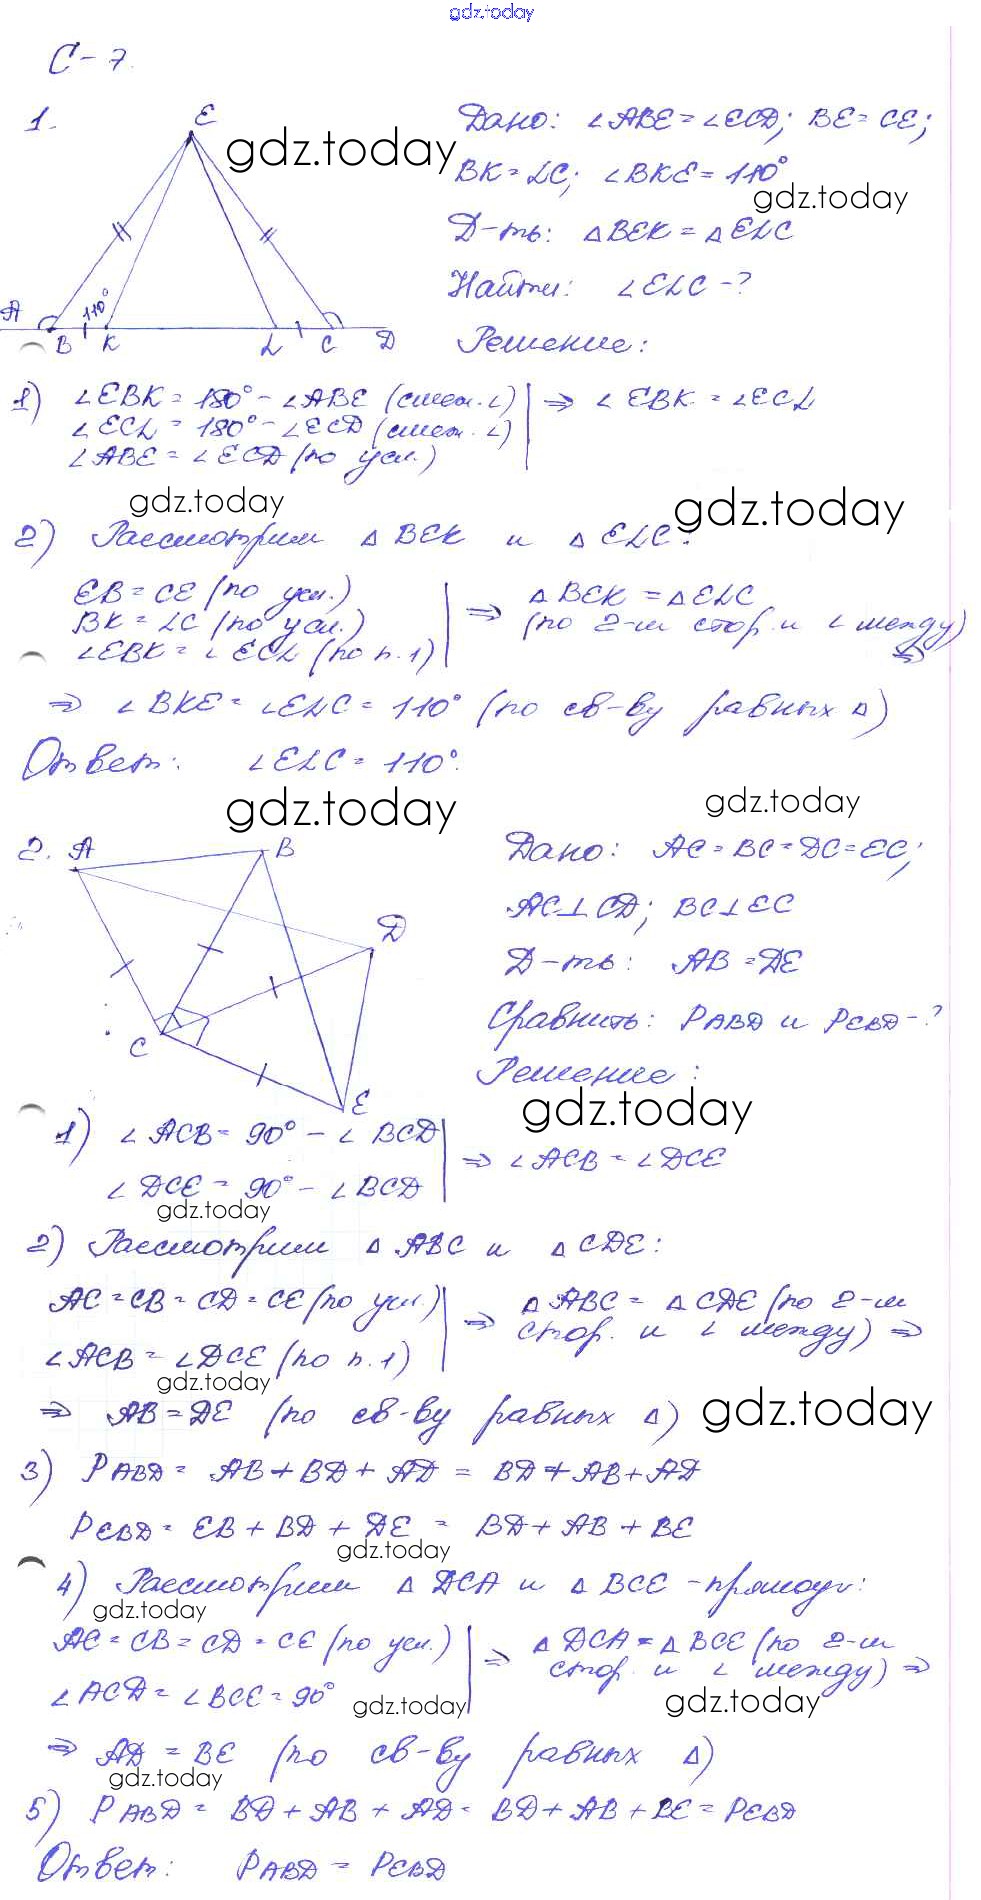 gdz.today
С-7.
1.
E
gdz.today
Дано: ∠ABE = ∠ECD; BE = CE;
BK = LC; ∠BKE = 110°
gdz.today
Д-ть: △BEK = △ELC
Найти: ∠ELC - ?
A 110°
B K L C D
Решение:
1) ∠EBK = 180° - ∠ABE (смеж. ∠) ⇒ ∠EBK = ∠ECL
∠ECL = 180° - ∠ECD (смеж. ∠)
∠ABE = ∠ECD (по усл.)
gdz.today gdz.today
2) Рассмотрим △BEK и △ELC:
EB = CE (по усл.) ⇒ △BEK = △ELC
BK = LC (по усл.) (по 2-м стор. и ∠ между)
∠EBK = ∠ECL (по п.1) ⇒
⇒ ∠BKE = ∠ELC = 110° (по св-ву равных △)
Ответ: ∠ELC = 110°.
gdz.today gdz.today
2. A B
Дано: AC = BC = DC = EC;
AC⊥CD; BC⊥EC
D
Д-ть: AB = DE
Сравнить: PABD и PEBD - ?
C
Решение:
E
gdz.today
1) ∠ACB = 90° - ∠BCD ⇒ ∠ACB = ∠DCE
∠DCE = 90° - ∠BCD
gdz.today
2) Рассмотрим △ABC и △CDE:
AC = CB = CD = CE (по усл.) ⇒ △ABC = △CDE (по 2-м
стор. и ∠ между) ⇒
∠ACB = ∠DCE (по п.1)
gdz.today
⇒ AB = DE (по св-ву равных △) gdz.today
3) PABD = AB + BD + AD = BD + AB + AD
PEBD = EB + BD + DE = BD + AB + BE
gdz.today
4) Рассмотрим △DCA и △BCE - прямоуг:
gdz.today
AC = CB = CD = CE (по усл.) ⇒ △DCA = △BCE (по 2-м
стор. и ∠ между) ⇒
∠ACD = ∠BCE = 90° gdz.today gdz.today
⇒ AD = BE (по св-ву равных △)
gdz.today
5) PABD = BD + AB + AD = BD + AB + BE = PEBD
Ответ: PABD = PEBD